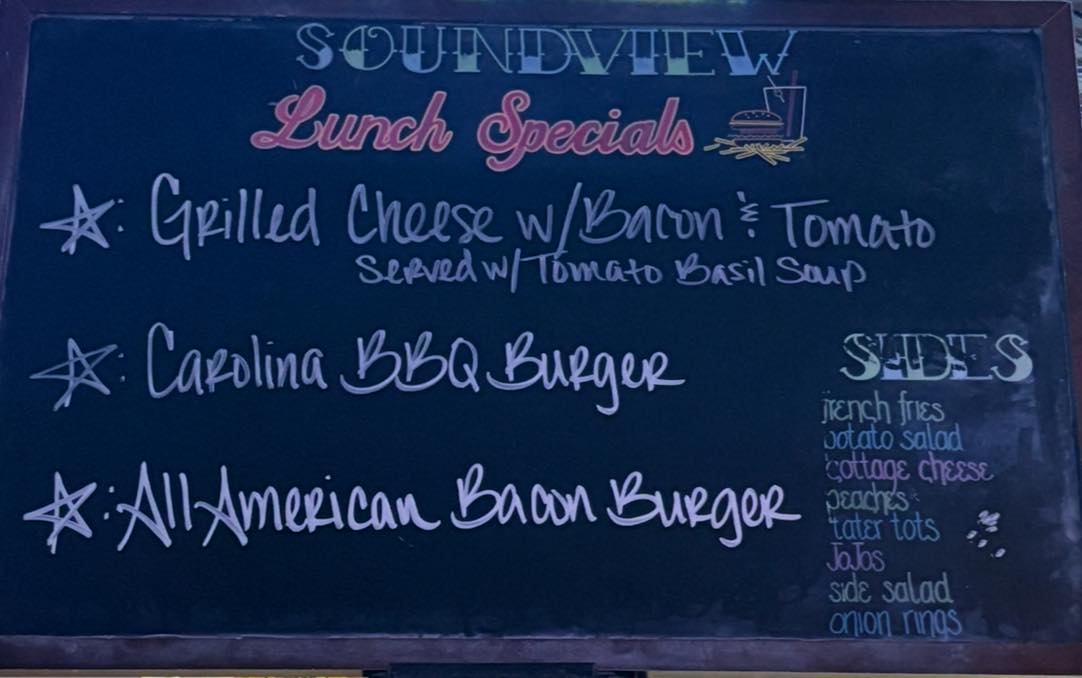 SOUNDVIEW
Lunch Specials
☆: Grilled Cheese w/Bacon & Tomato
Served w/Tomato Basil Soup
☆: Carolina BBQ Burger
☆: All American Bacon Burger
SIDES
french fries
potato salad
cottage cheese
peaches
tater tots
JoJos
side salad
onion rings